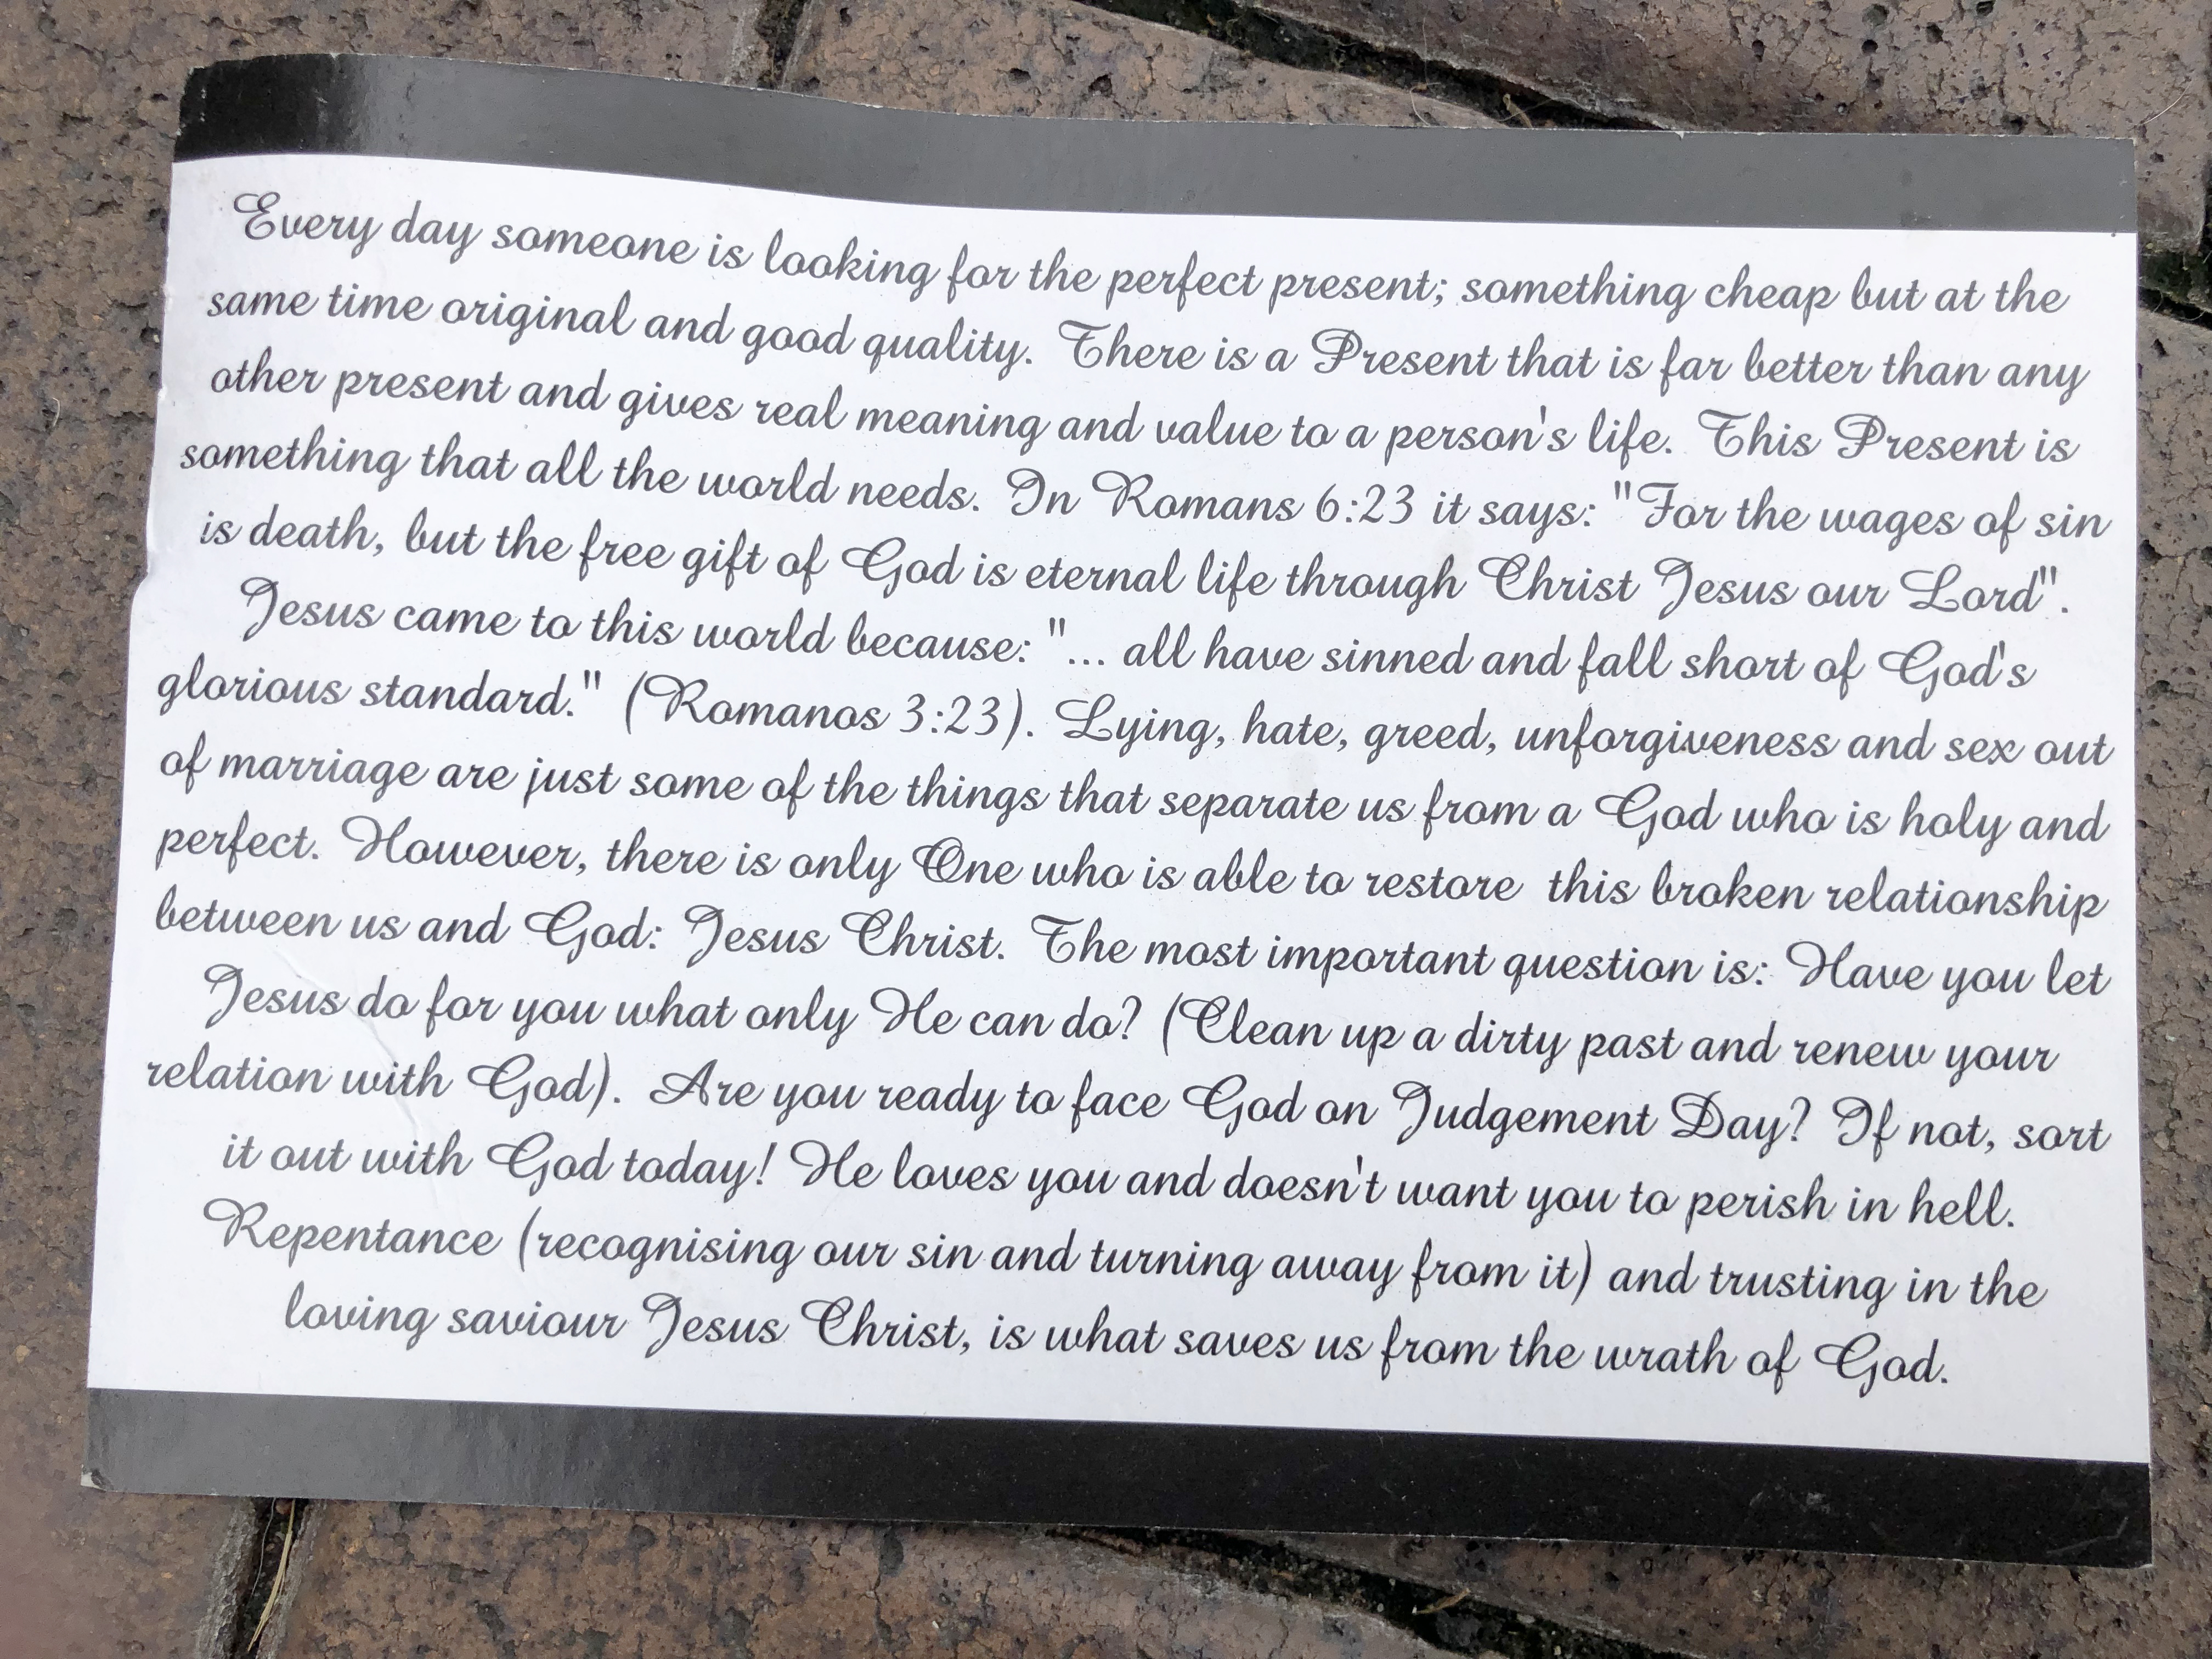 Every day someone is looking for the perfect present; something cheap but at the
same time original and good quality. There is a Present that is far better than any
other present and gives real meaning and value to a person's life. This Present is
something that all the world needs. In Romans 6:23 it says: "For the wages of sin
is death, but the free gift of God is eternal life through Christ Jesus our Lord".
Jesus came to this world because: "... all have sinned and fall short of God's
glorious standard." (Romanos 3:23). Lying, hate, greed, unforgiveness and sex out
of marriage are just some of the things that separate us from a God who is holy and
perfect. However, there is only One who is able to restore this broken relationship
between us and God: Jesus Christ. The most important question is: Have you let
Jesus do for you what only He can do? (Clean up a dirty past and renew your
relation with God). Are you ready to face God on Judgement Day? If not, sort
it out with God today! He loves you and doesn't want you to perish in hell.
Repentance (recognising our sin and turning away from it) and trusting in the
loving saviour Jesus Christ, is what saves us from the wrath of God.